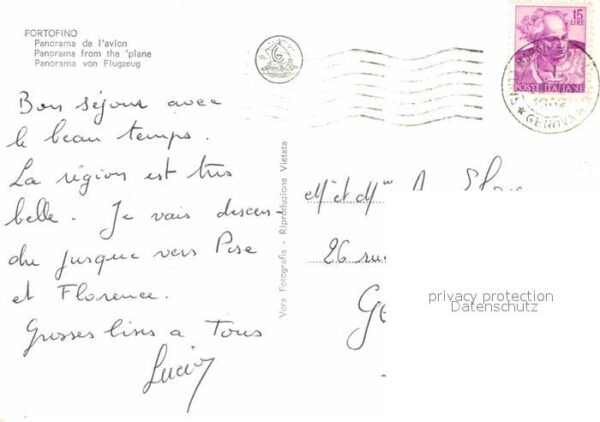 PORTOFINO
Panorama de l'avion
Panorama from the 'plane
Panorama von Flugzeug
15
LIRE
POSTE ITALIANE
1962
GENOVA
Bon séjour avec
le beau temps.
La région est très
belle. Je vais descen-
dre jusque vers Pise
et Florence.
Grosses bises a Tous
Lucien
Vera Fotografia - Riproduzione Vietata
Mr et Mme A.
26 rue
Ge
privacy protection
Datenschutz